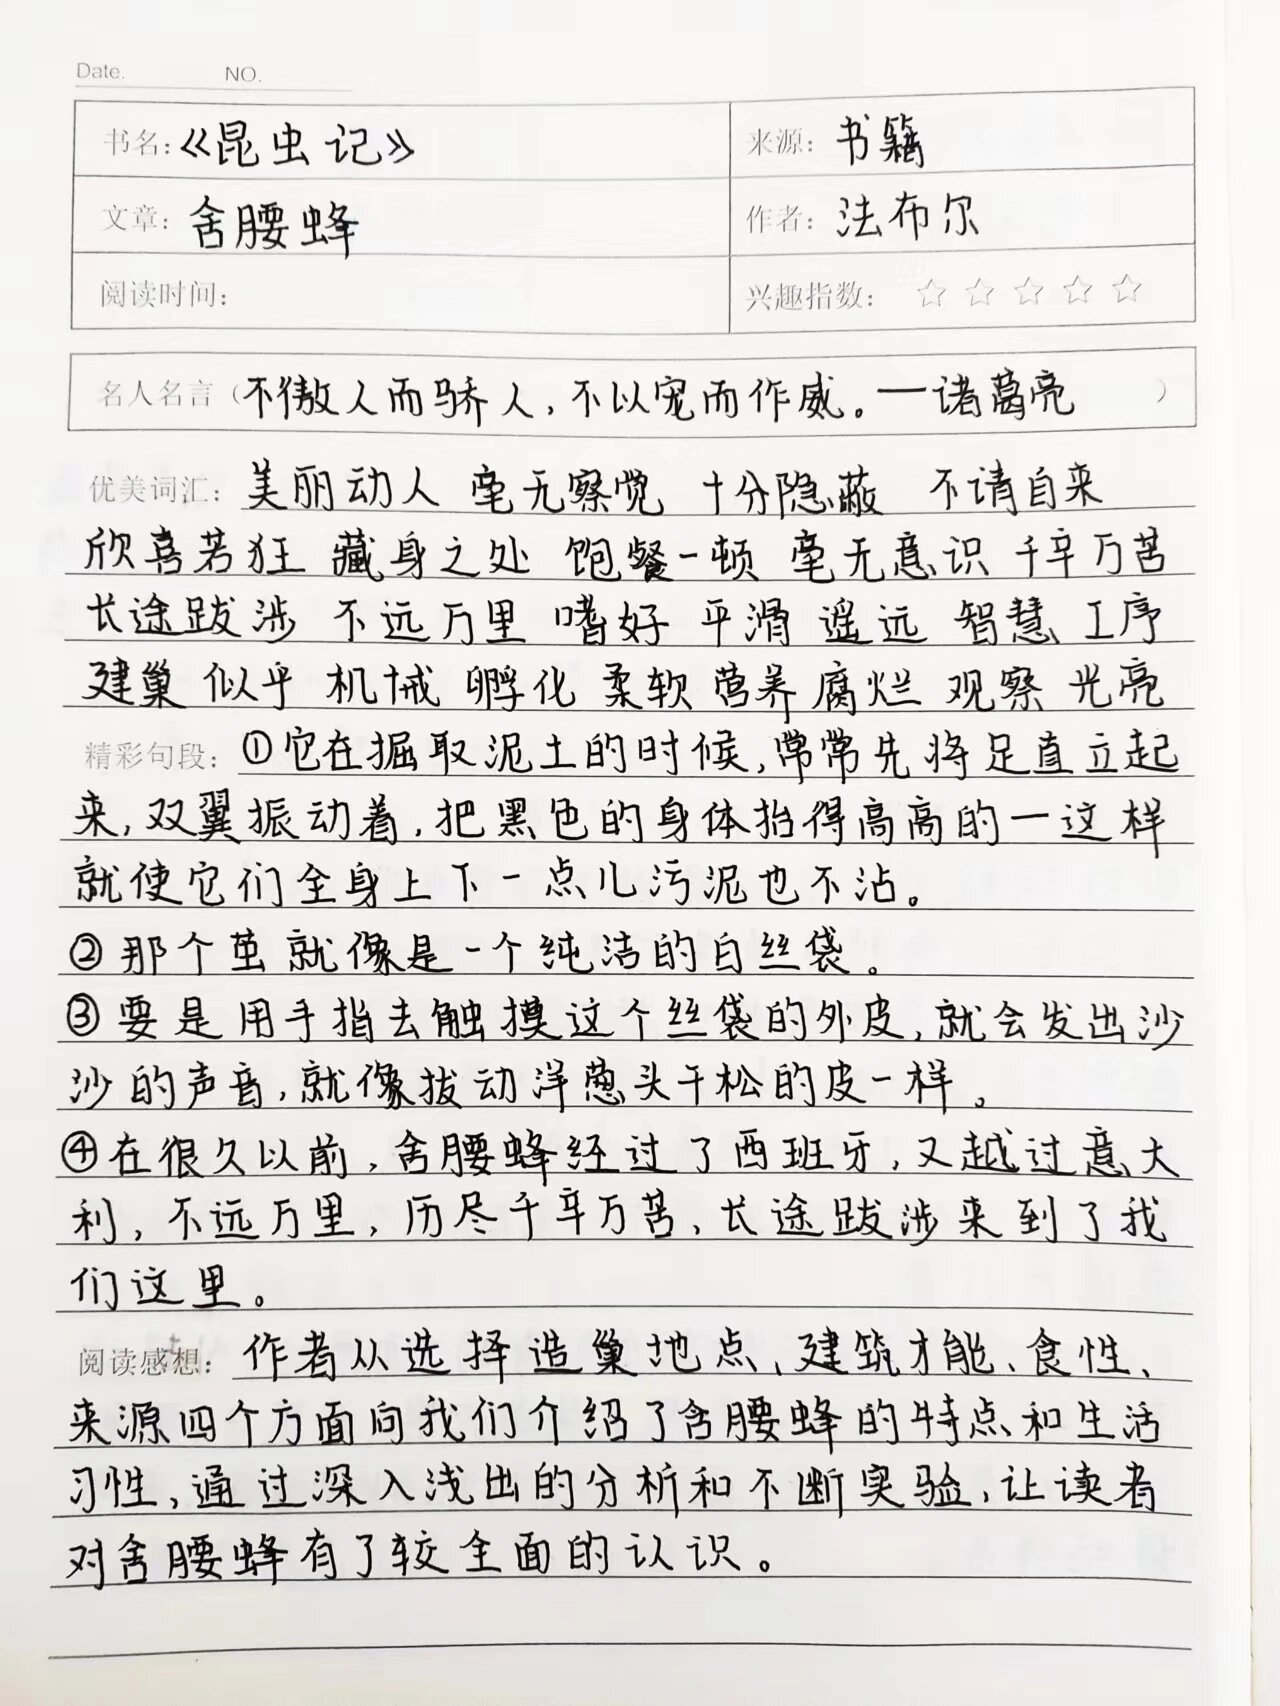 Date. NO.
书名：《昆虫记》 来源：书籍
文章：舍腰蜂 作者：法布尔
阅读时间： 兴趣指数：☆☆☆☆☆
名人名言（不傲人而骄人，不以宠而作威。—诸葛亮）
优美词汇：美丽动人 毫无察觉 十分隐蔽 不请自来
欣喜若狂 藏身之处 饱餐一顿 毫无意识 千辛万苦
长途跋涉 不远万里 嗜好 平滑 遥远 智慧 工序
建巢 似乎 机械 孵化 柔软 营养 腐烂 观察 光亮
精彩句段：①它在掘取泥土的时候，常常先将足直立起
来，双翼振动着，把黑色的身体抬得高高的一这样
就使它们全身上下一点儿污泥也不沾。
②那个茧就像是一个纯洁的白丝袋。
③要是用手指去触摸这个丝袋的外皮，就会发出沙
沙的声音，就像拔动洋葱头干松的皮一样。
④在很久以前，舍腰蜂经过了西班牙，又越过意大
利，不远万里，历尽千辛万苦，长途跋涉来到了我
们这里。
阅读感想：作者从选择造巢地点、建筑才能、食性、
来源四个方面向我们介绍了舍腰蜂的特点和生活
习性，通过深入浅出的分析和不断实验，让读者
对舍腰蜂有了较全面的认识。